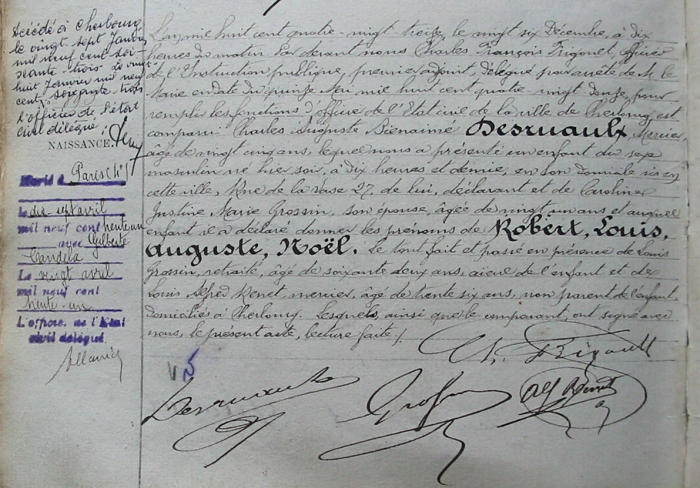 Décédé à Cherbourg
le vingt sept Janvier
mil neuf cent soi-
xante trois. Le vingt
huit Janvier mil neuf
cent soixante trois
L'officier de l'état
civil délégué :
NAISSANCE.
Marié à Paris (4e)
le dix sept avril
mil neuf cent trente un
avec Gilberte
Candela
Le vingt avril
mil neuf cent
trente un
L'officier de l'Etat
civil délégué.
L'an mil huit cent quatre-vingt treize, le vingt six Décembre, à dix
heures du matin Par devant nous Charles François Frigoult, officier
de l'Instruction publique, premier adjoint, délégué par arrêté de M. le
Maire en date du quinze Mai mil huit cent quatre-vingt douze, pour
remplir les fonctions d'officier de l'Etat civil de la ville de Cherbourg, est
comparu Charles Auguste Bienaimé Desruault, Mercier,
âgé de vingt cinq ans, lequel nous a présenté un enfant du sexe
masculin né hier soir, à dix heures et demie, en son domicile sis en
cette ville, Rue de la vase 27, de lui, déclarant et de Caroline
Justine Marie Grossin, son épouse, âgée de vingt un ans et auquel
enfant il a déclaré donner les prénoms de Robert, Louis,
Auguste, Noël. Le tout fait et passé en présence de Louis
Grossin, retraité, âgé de soixante deux ans, aïeul de l'enfant et de
Louis Alfred Renet mercier, âgé de trente six ans, non parent de l'enfant,
domiciliés à Cherbourg. Lesquels, ainsi que le comparant, ont signé avec
nous, le présent acte, lecture faite /.
Desruault
Alf Renet